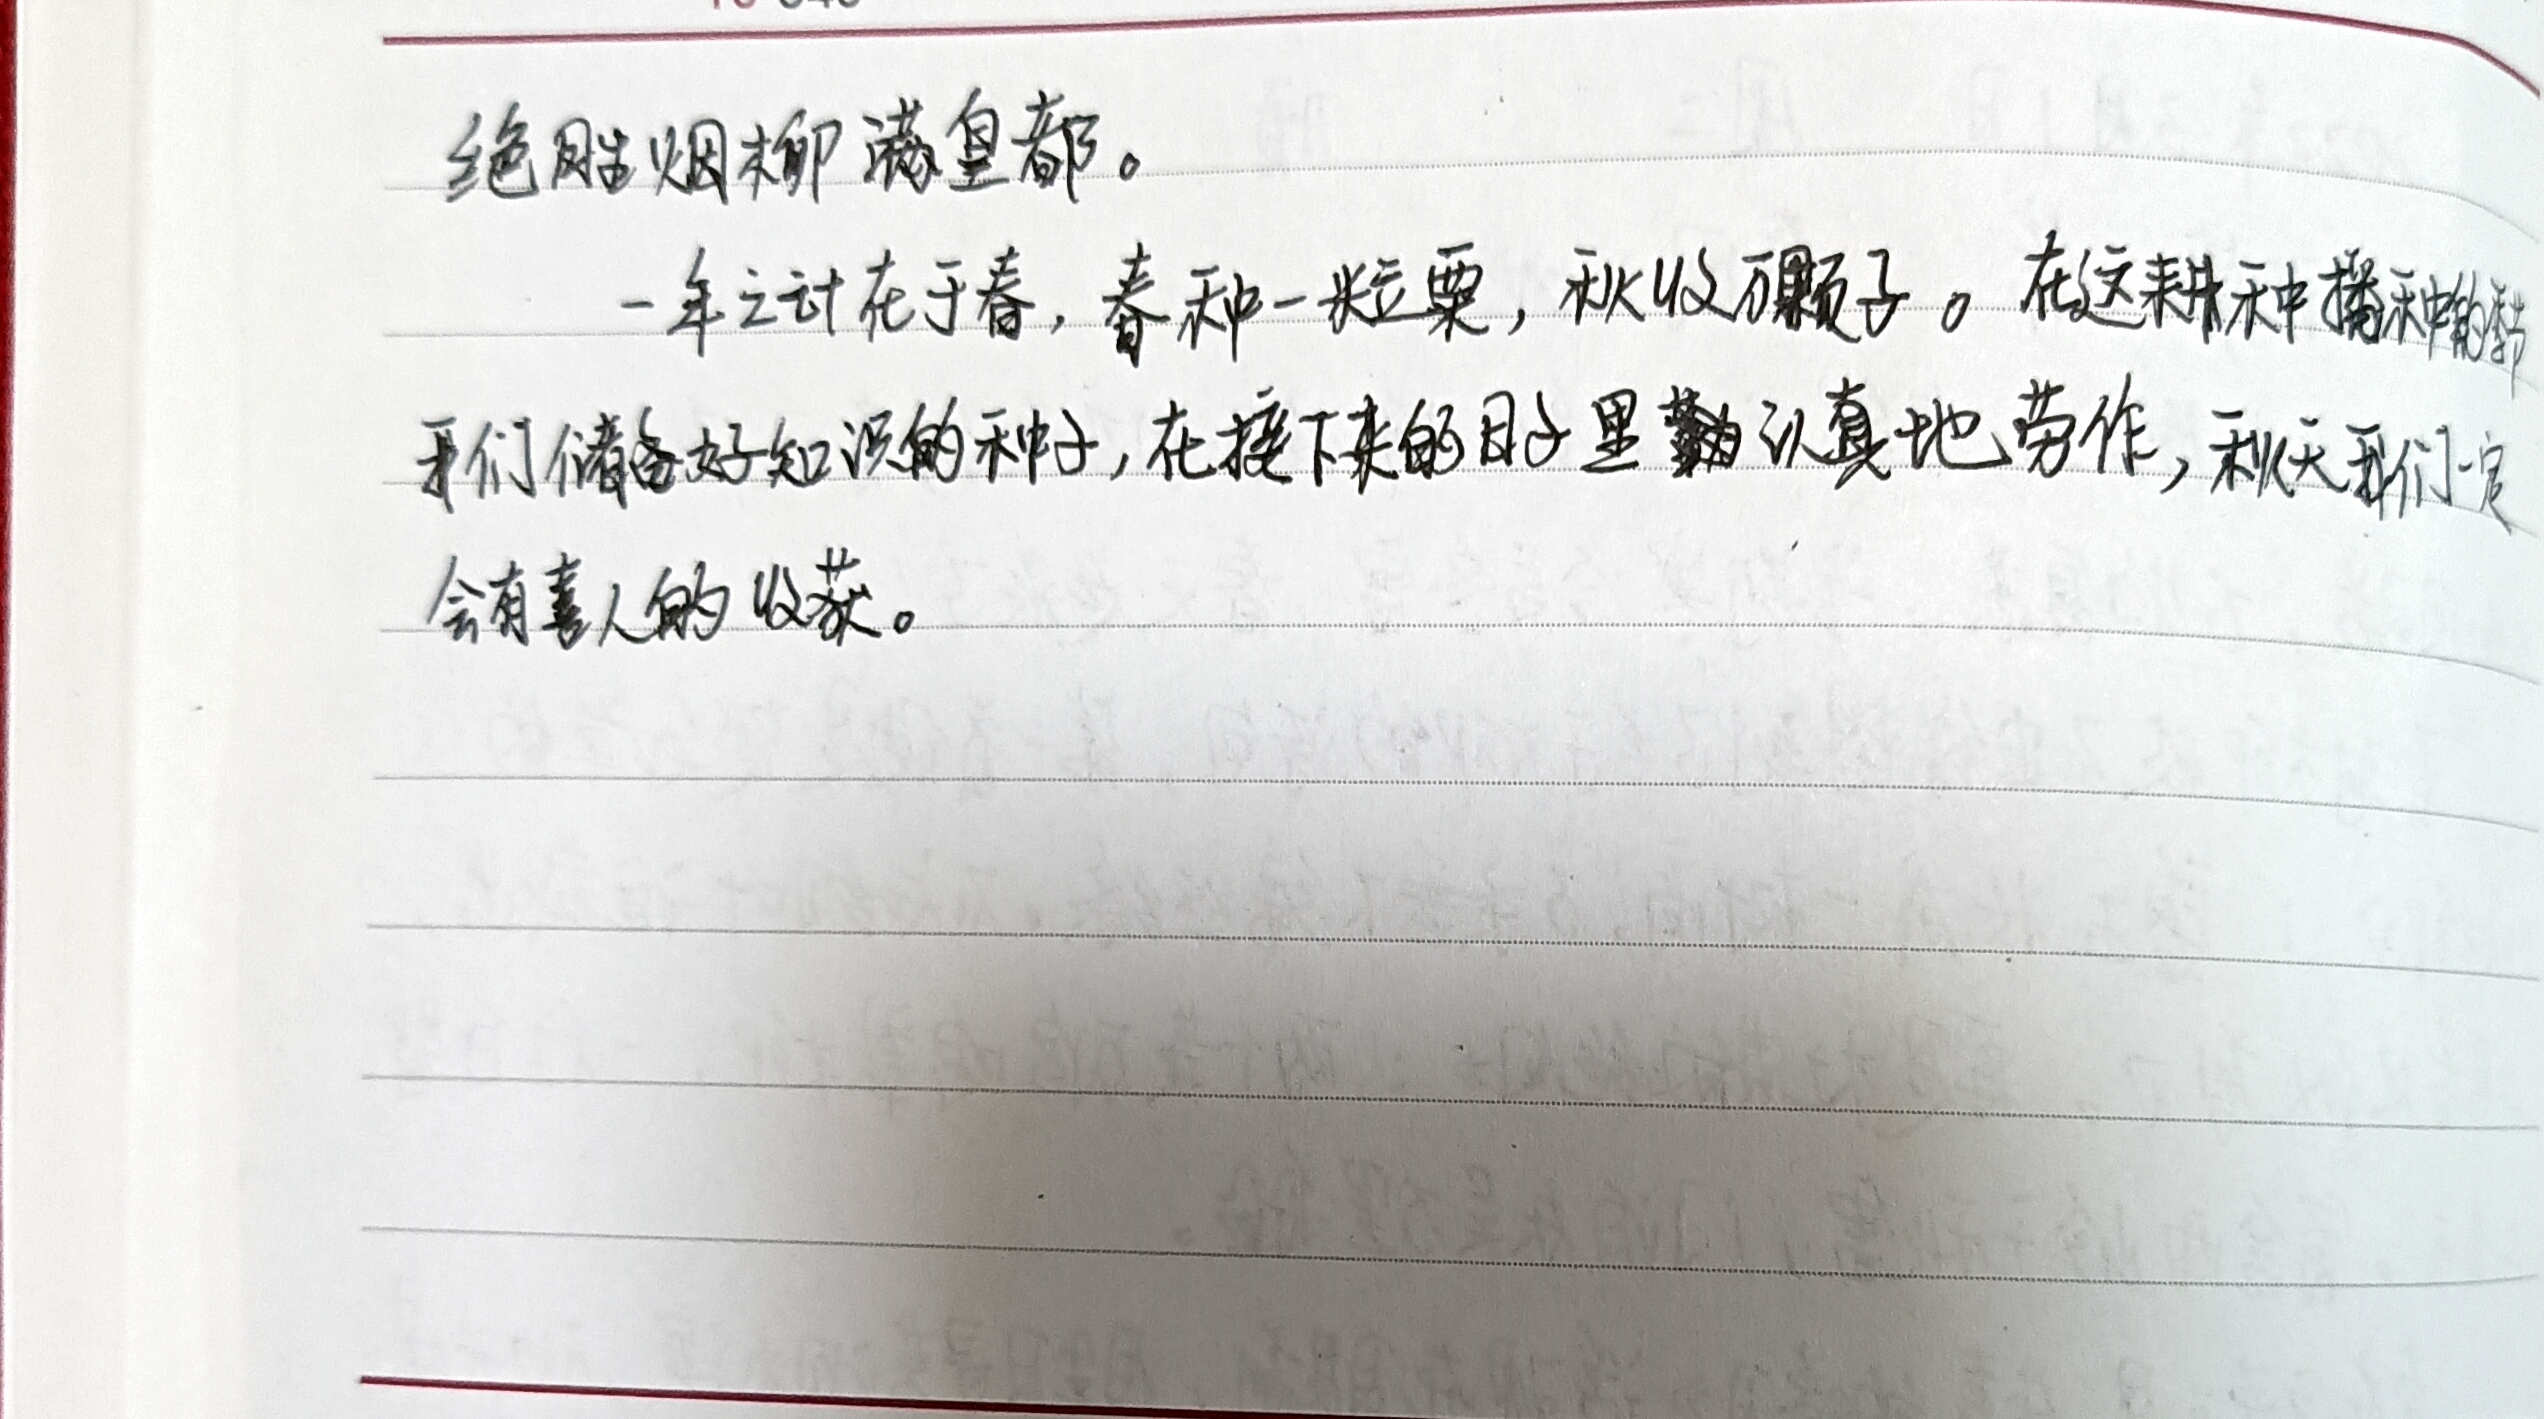 绝胜烟柳满皇都。
一年之计在于春，春种一粒粟，秋收万颗子。在这耕种播种的季节
我们储备好知识的种子，在接下来的日子里认真地劳作，秋天我们一定
会有喜人的收获。